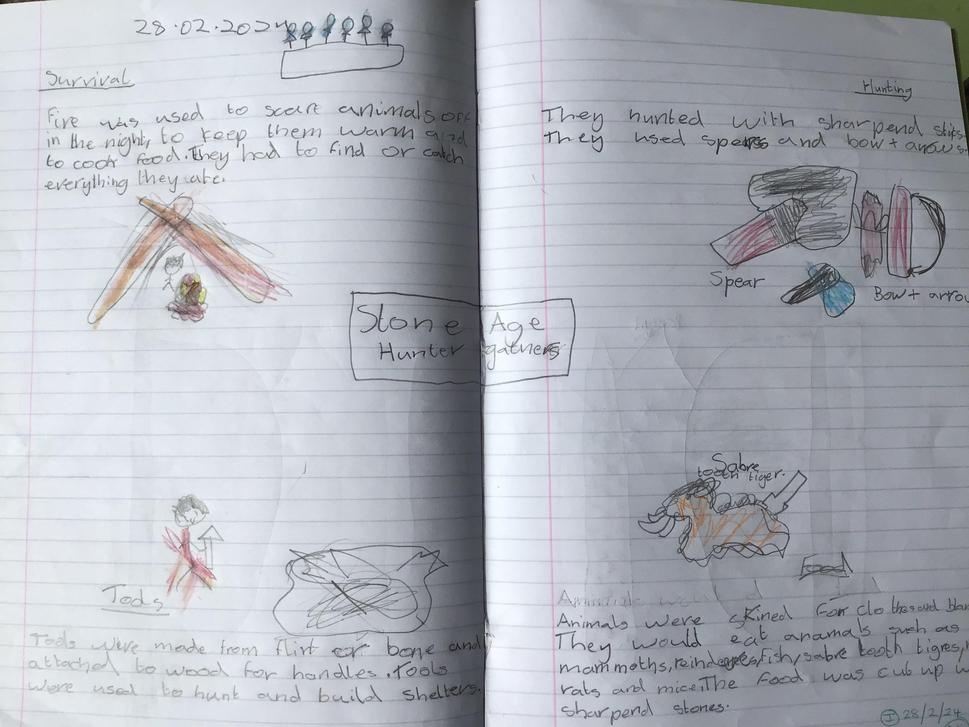 28.02.2024
Survival
Fire was used to scare animals off
in the night, to keep them warm and
to cook food. They had to find or catch
everything they ate.
Hunting
They hunted with sharpend stiks
They used spears and bow + arows
Spear
Bow + arrow
Stone Age
Hunter gathers
Sabre
tooth tiger.
Tools
Tools were made from flint or bone and
attached to wood for handles. Tools
were used to hunt and build shelters.
Food
Animals were skined for clothes and
They would eat anamals such as
mammoths, reindeer, fish, sabre tooth tigres,
rats and mice. The food was cut up
sharpend stones.
28/2/24